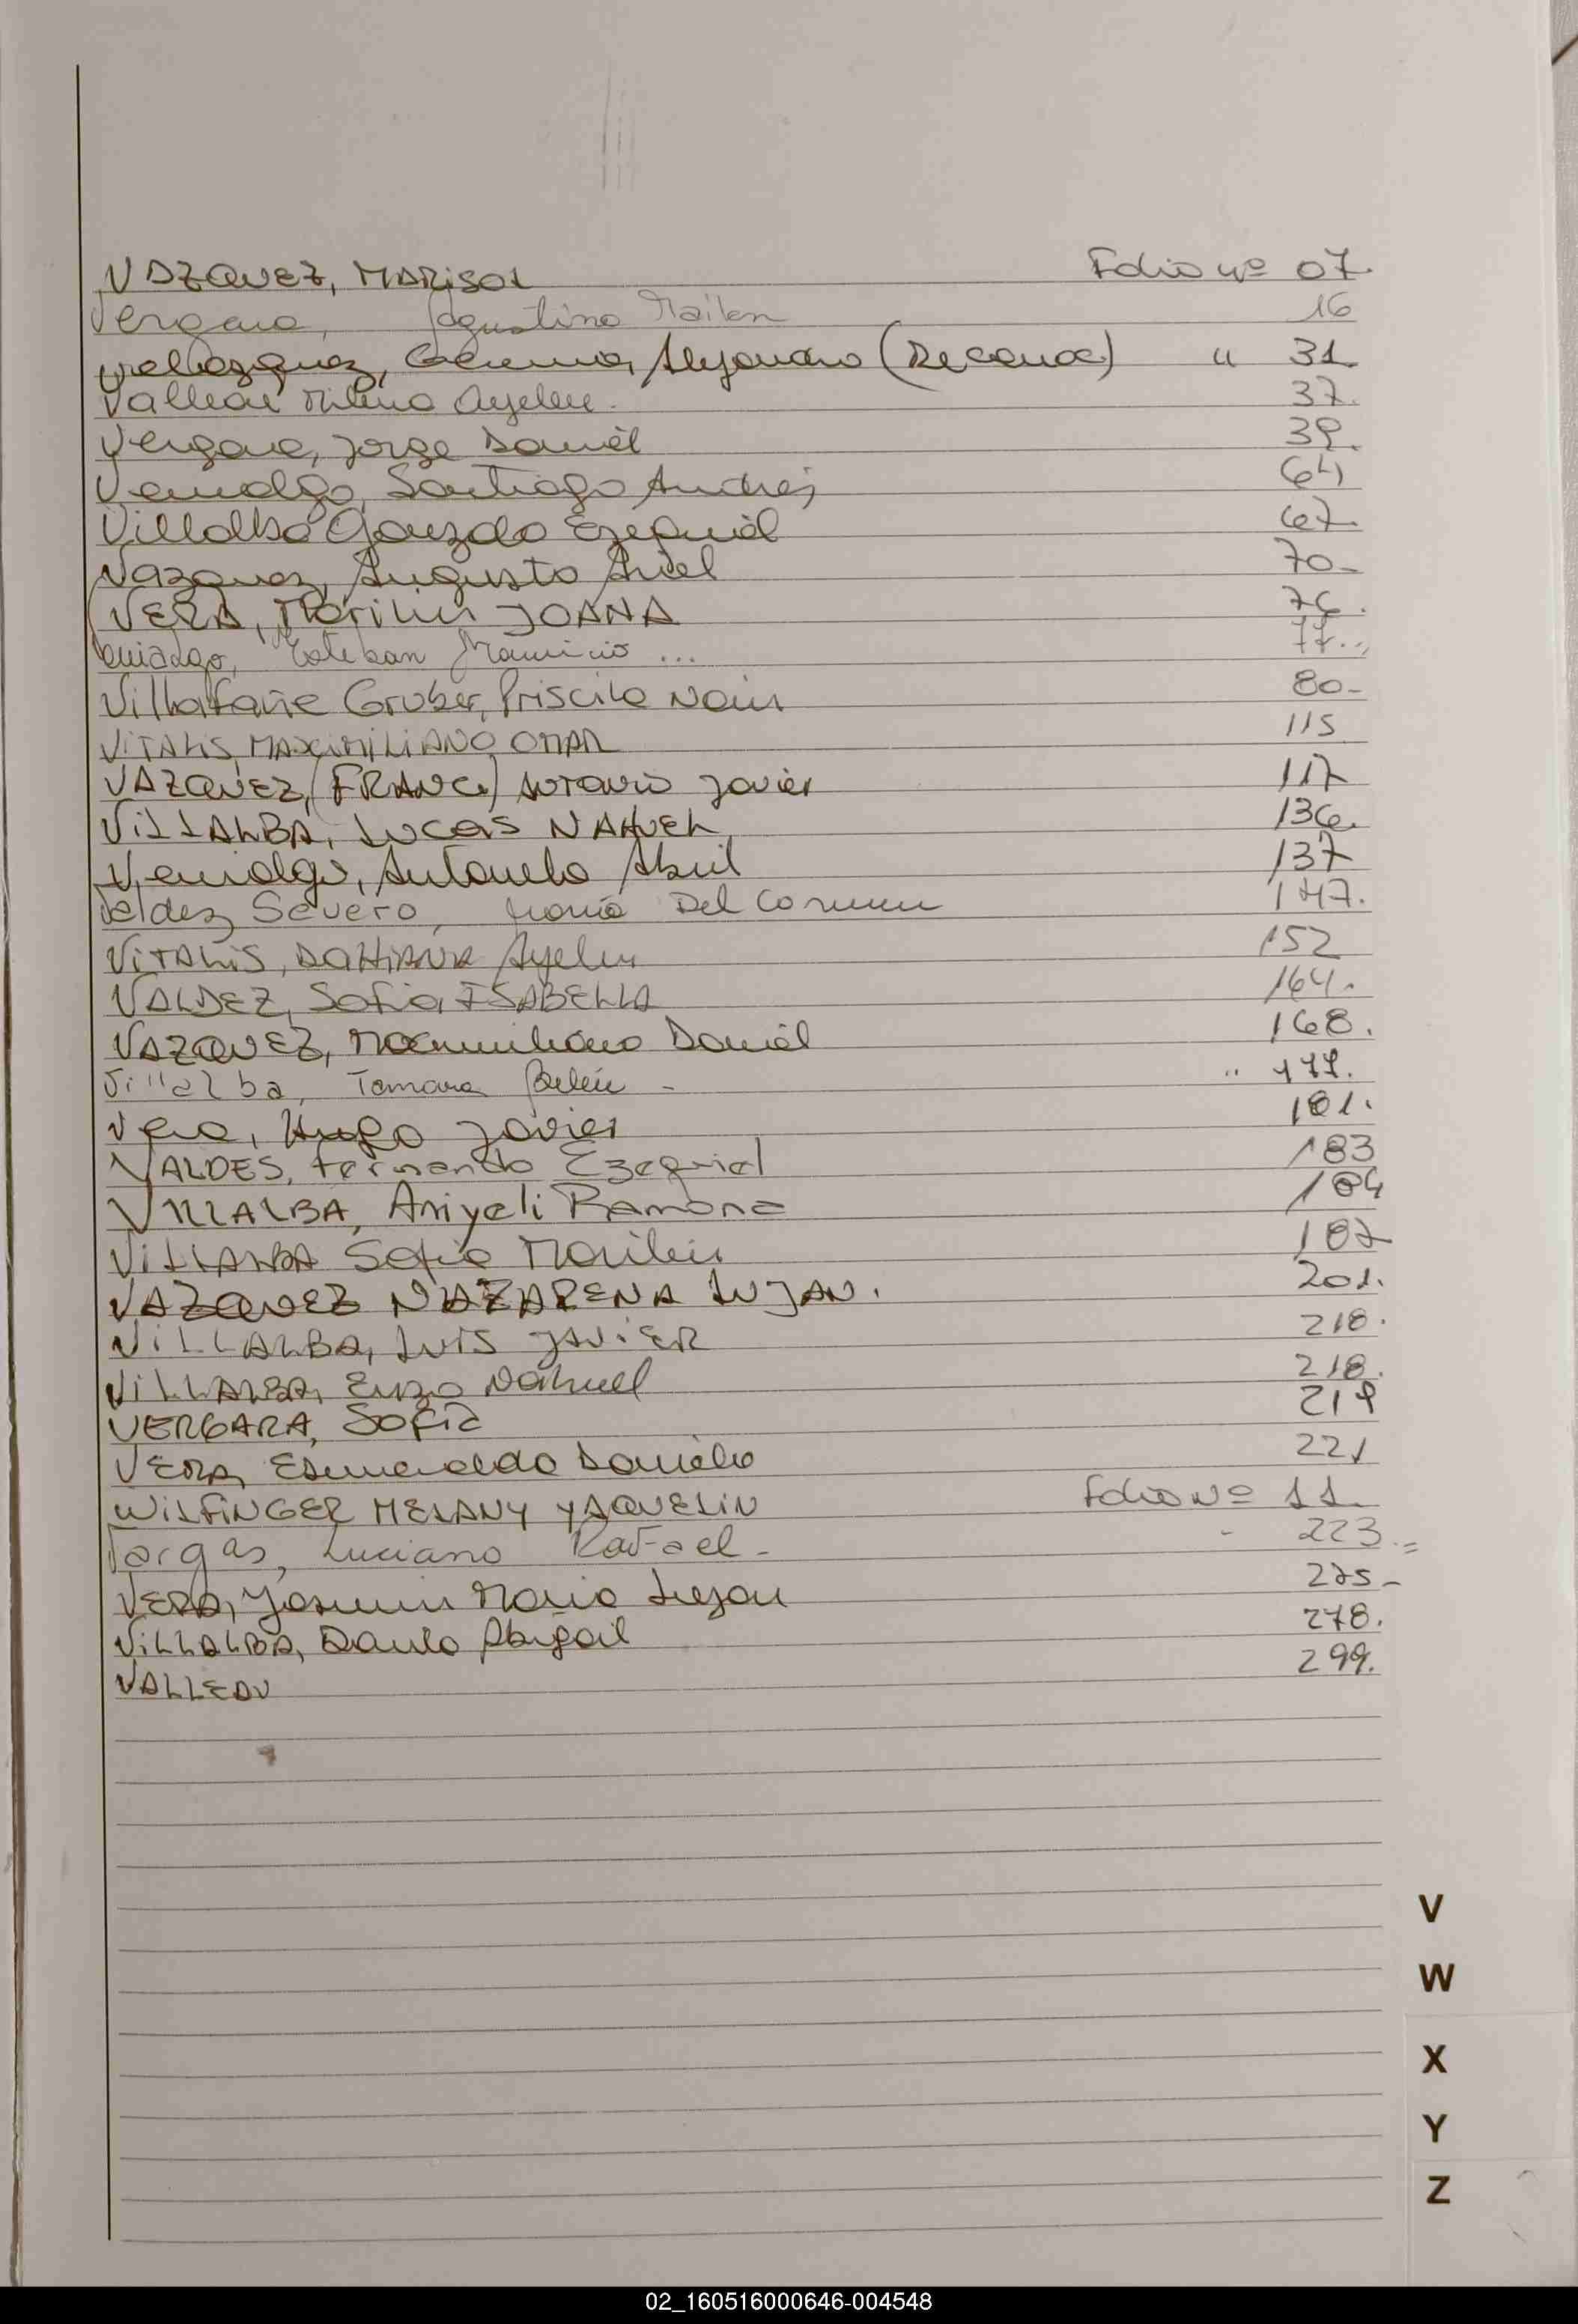 VAZQUEZ, MARISOL Folio nº 07.
Vergara, Agustina Mailen 16
Velazquez, Alejandro (Reconoc) " 31
Vallear Milena Ayelen. 37.
Vergara, Jorge Daniel 39.
Veniалgo, Santiago Andres 64
Villalba Gonzalo Ezequiel 67.
Vazquez, Augusto Ariel 70-
VERA, Marilin JOANA 76.
Venialgo, Esteban Mauricio ... 77..,
Villafañe Gruber, Priscila Nair 80-
VITALIS, MAXIMILIANO OMAR 115
VAZQUEZ, (FRANCO) Antonio Javier 117
VILLALBA, Lucas NAHUEL 136.
Venialgo, Antonela Abril 137
Valdez Severo, María Del Carmen 147.
VITALIS, DAHIANA Ayelen 152
VALDEZ, Sofia, ISABELLA 164.
VAZQUEZ, Maximiliano Daniel 168.
Villalba, Tamara Belén - " 177.
Vera, Hugo Javier 181.
VALDES, Fernando Ezequiel 183
VILLALBA, Ariyeli Ramona 184
VILLALBA Sofia Marilin 187
VAZQUEZ NAZARENA LUJAN. 201.
VILLALBA, LUIS JAVIER 218.
VILLALBA, Enzo Nahuel 218.
VERGARA, Sofia 219
VERA, Esmeralda Daniela 221
WILFINGER MELANY YAQUELIN Folio Nº 11.
Vargas, Luciano Rafael - - 223.=
VERA, Yasmin Maria Lujan 275-
VILLALBA, Abigail 278.
VALLEAU 299.
V
W
X
Y
Z
02_160516000646-004548